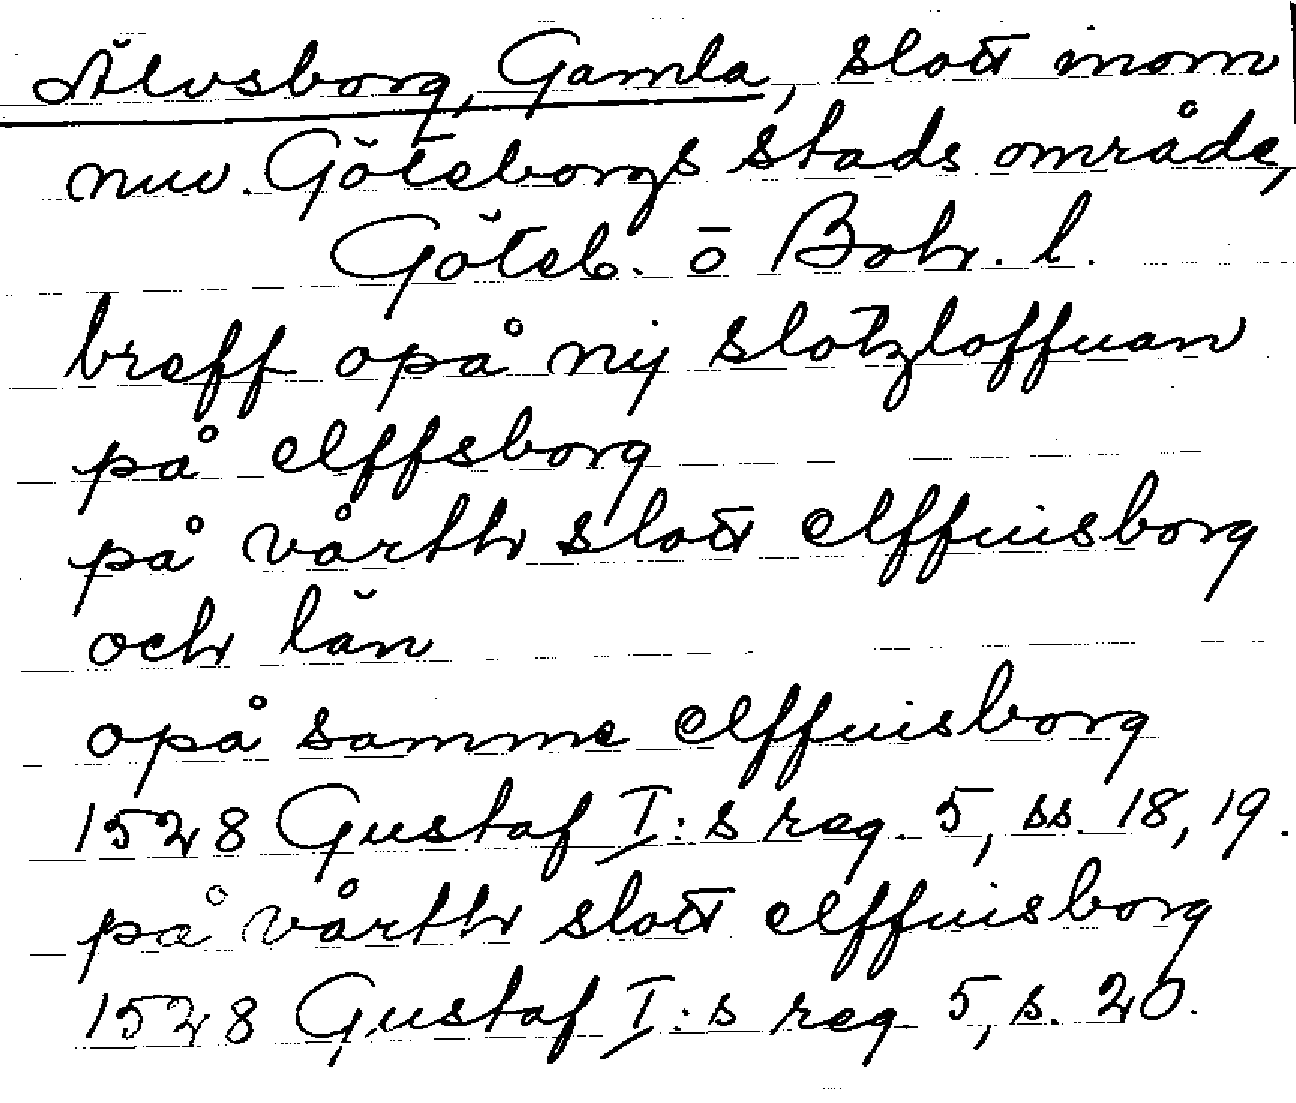 Älvsborg, Gamla, slott inom
nuv. Göteborgs stads område,
Göteb. o Boh. l.
breff opå nij slotzloffuan
på elffsborg
på vårth slott elffuisborg
och län
opå samme elffuisborg
1528 Gustaf I:s reg. 5, ss. 18, 19.
på vårth slott elffuisborg
1528 Gustaf I:s reg 5, s. 20.